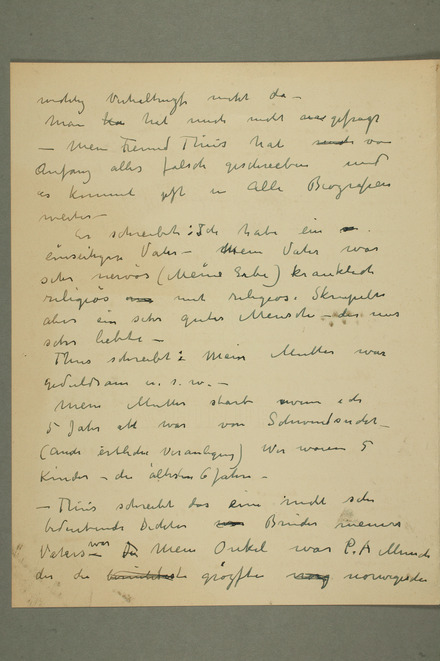 nicht da –
Man hat mich nicht ausgefragt
– Mein Freund Thiis hat von
Anfang alles falsch geschrieben und
es kommt oft in Alle Biografien
weiter –
Er schreibt: Ich habe ein
einseitigen Vater – Mein Vater war
sehr nervös (Meine Erbe) kränklich
religiös mit religiös. Skrupeln
aber ein sehr guter Mensch – der uns
sehr liebte –
Thiis schreibt: Mein Mutter war
geduldsam u. s. w. –
Mein Mutter starb wenn ich
5 Jahr alt war von Schwindsucht –
(auch erbliche Veranlagung) Wir waren 5
Kinder – die ältesten 6 Jahre –
– Thiis schreibt das ein nicht sehr
bedeutende Dichter Bruder meines
Vaters war – Mein Onkel war P. A Munch
der die größten norwegischen